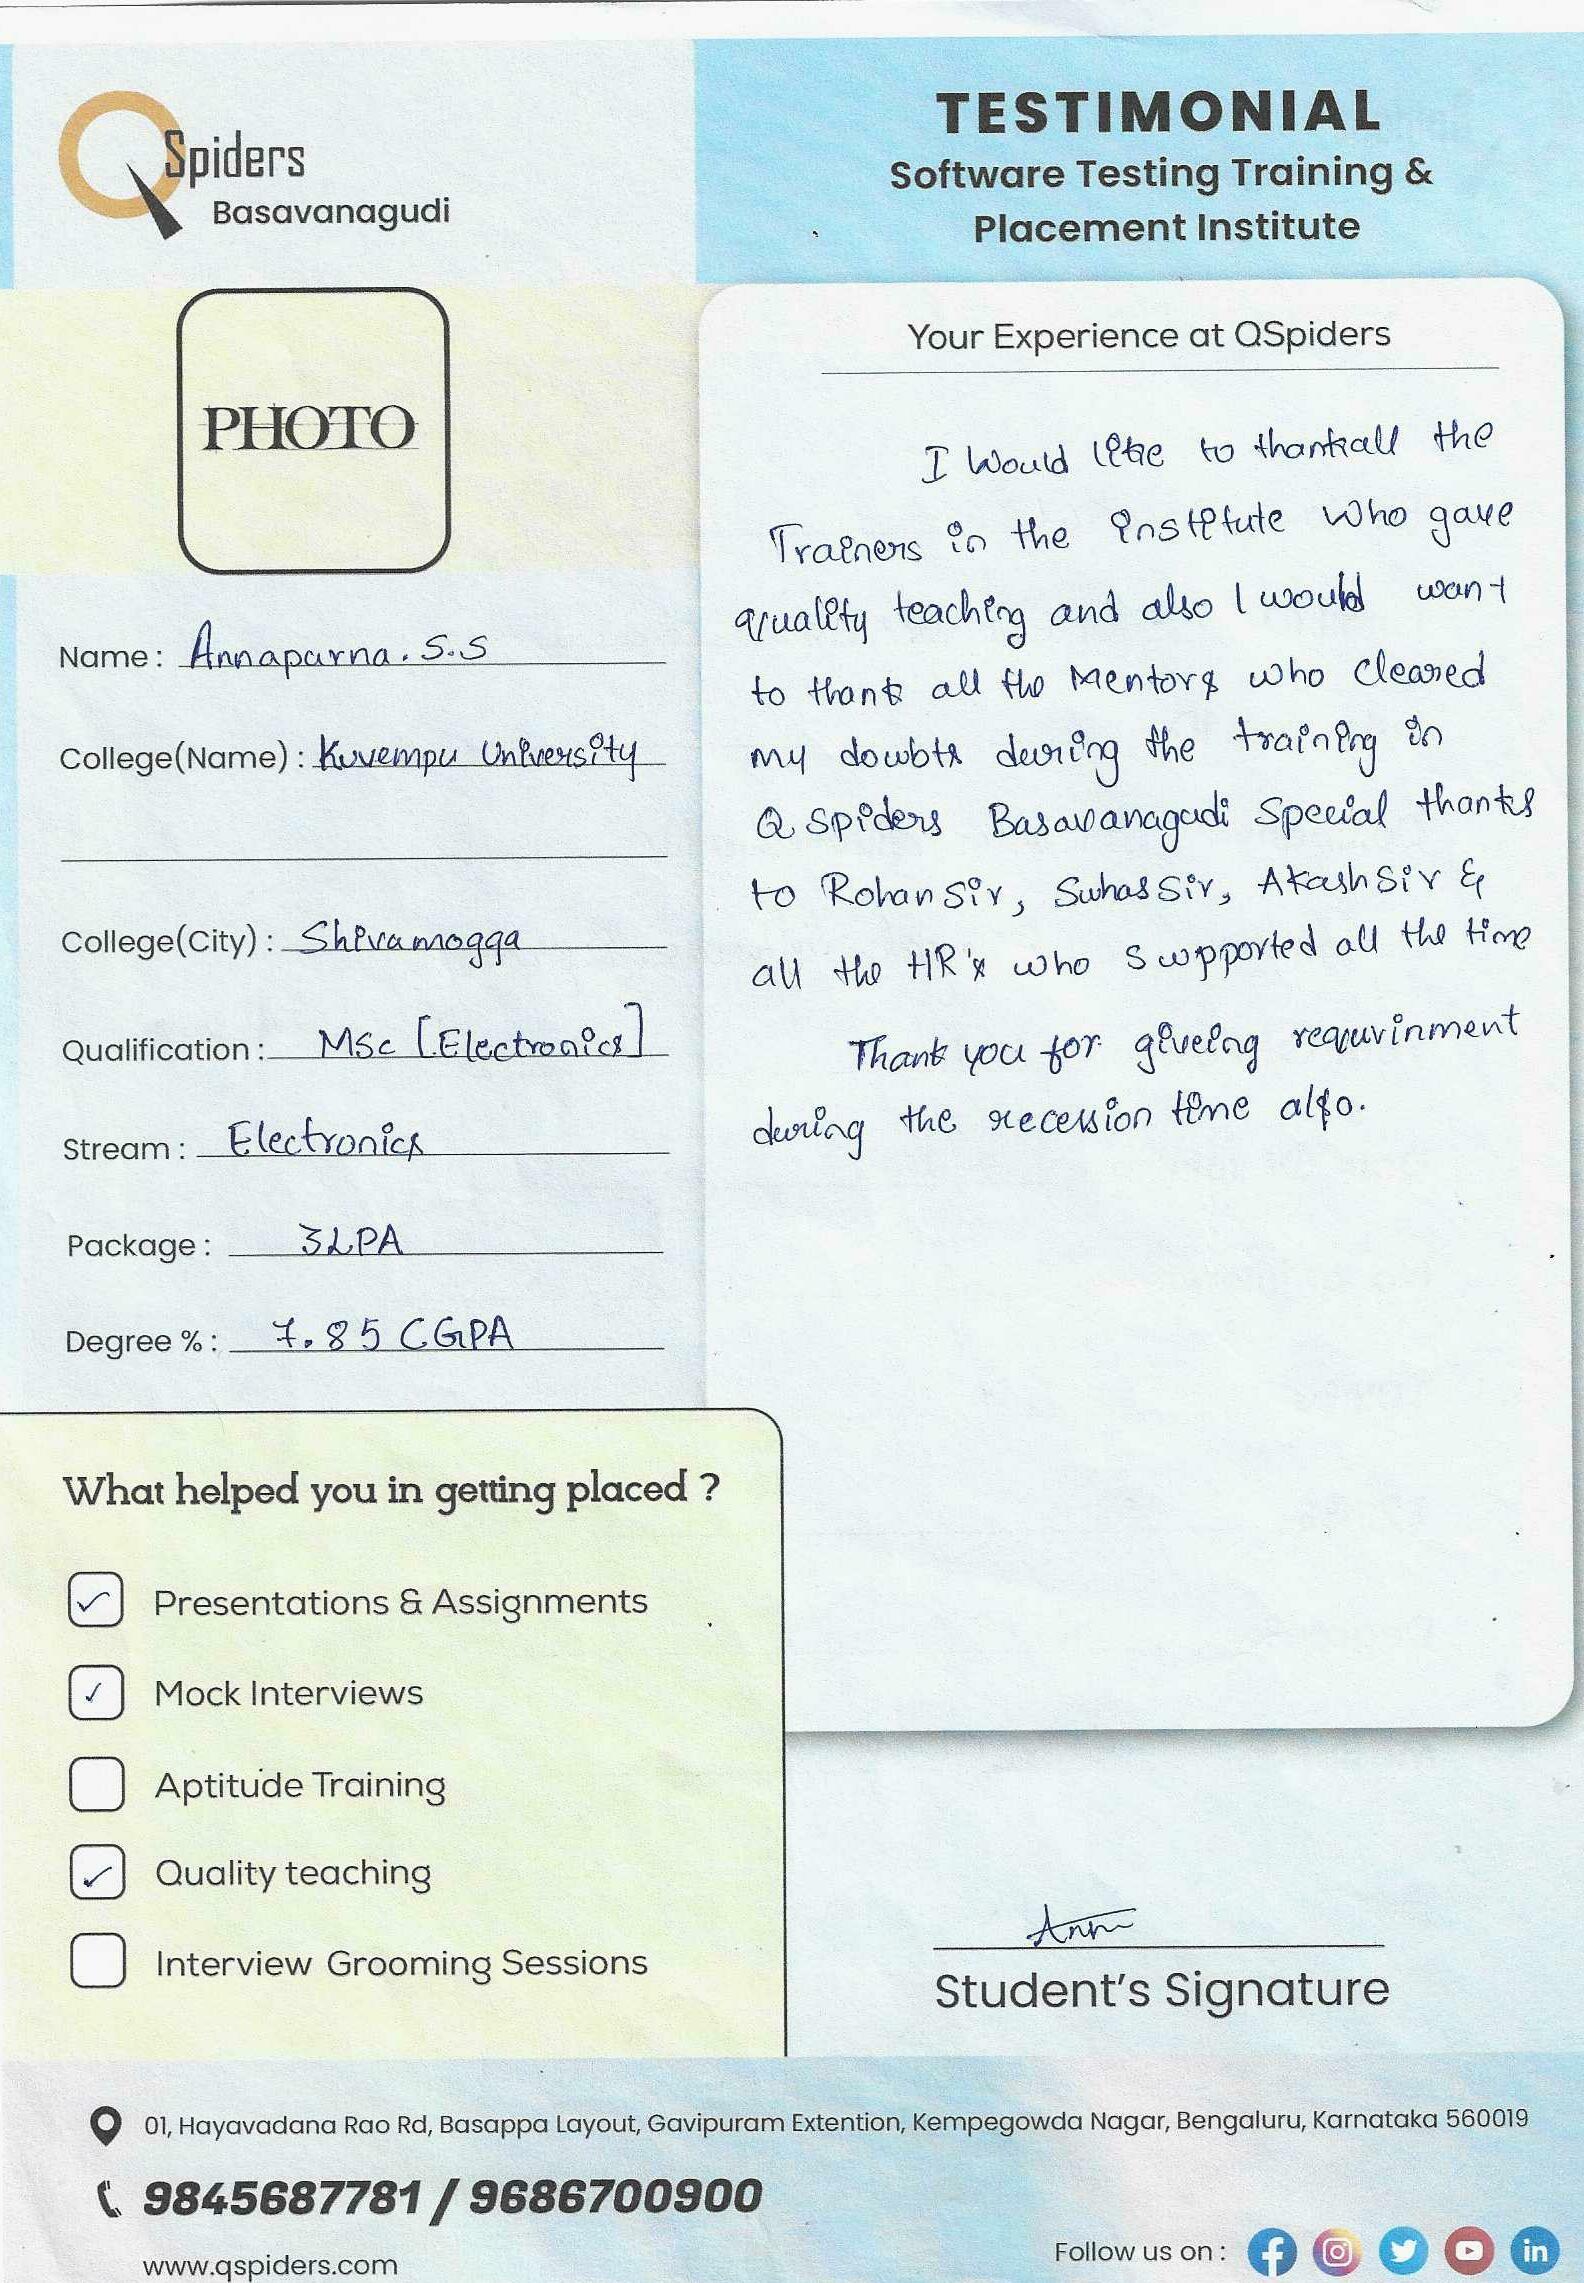 QSpiders
Basavanagudi
TESTIMONIAL
Software Testing Training &
Placement Institute
PHOTO
Name : Annapurna . S.S
College(Name) : Kuvempu University
College(City) : Shivamogga
Qualification : MSc [Electronics]
Stream : Electronics
Package : 3LPA
Degree % : 7.85 CGPA
Your Experience at QSpiders
I Would like to thank all the
Trainers in the institute who gave
quality teaching and also I would want
to thank all the Mentors who cleared
my doubts during the training in
Q Spiders Basavanagudi Special thanks
to Rohan Sir, Suhas Sir, Akash Sir &
all the HR's who supported all the time
Thank you for giveing requvinment
during the recession time also.
What helped you in getting placed ?
✓ Presentations & Assignments
✓ Mock Interviews
Aptitude Training
✓ Quality teaching
Interview Grooming Sessions
Ann
Student's Signature
01, Hayavadana Rao Rd, Basappa Layout, Gavipuram Extention, Kempegowda Nagar, Bengaluru, Karnataka 560019
9845687781 / 9686700900
www.qspiders.com
Follow us on :